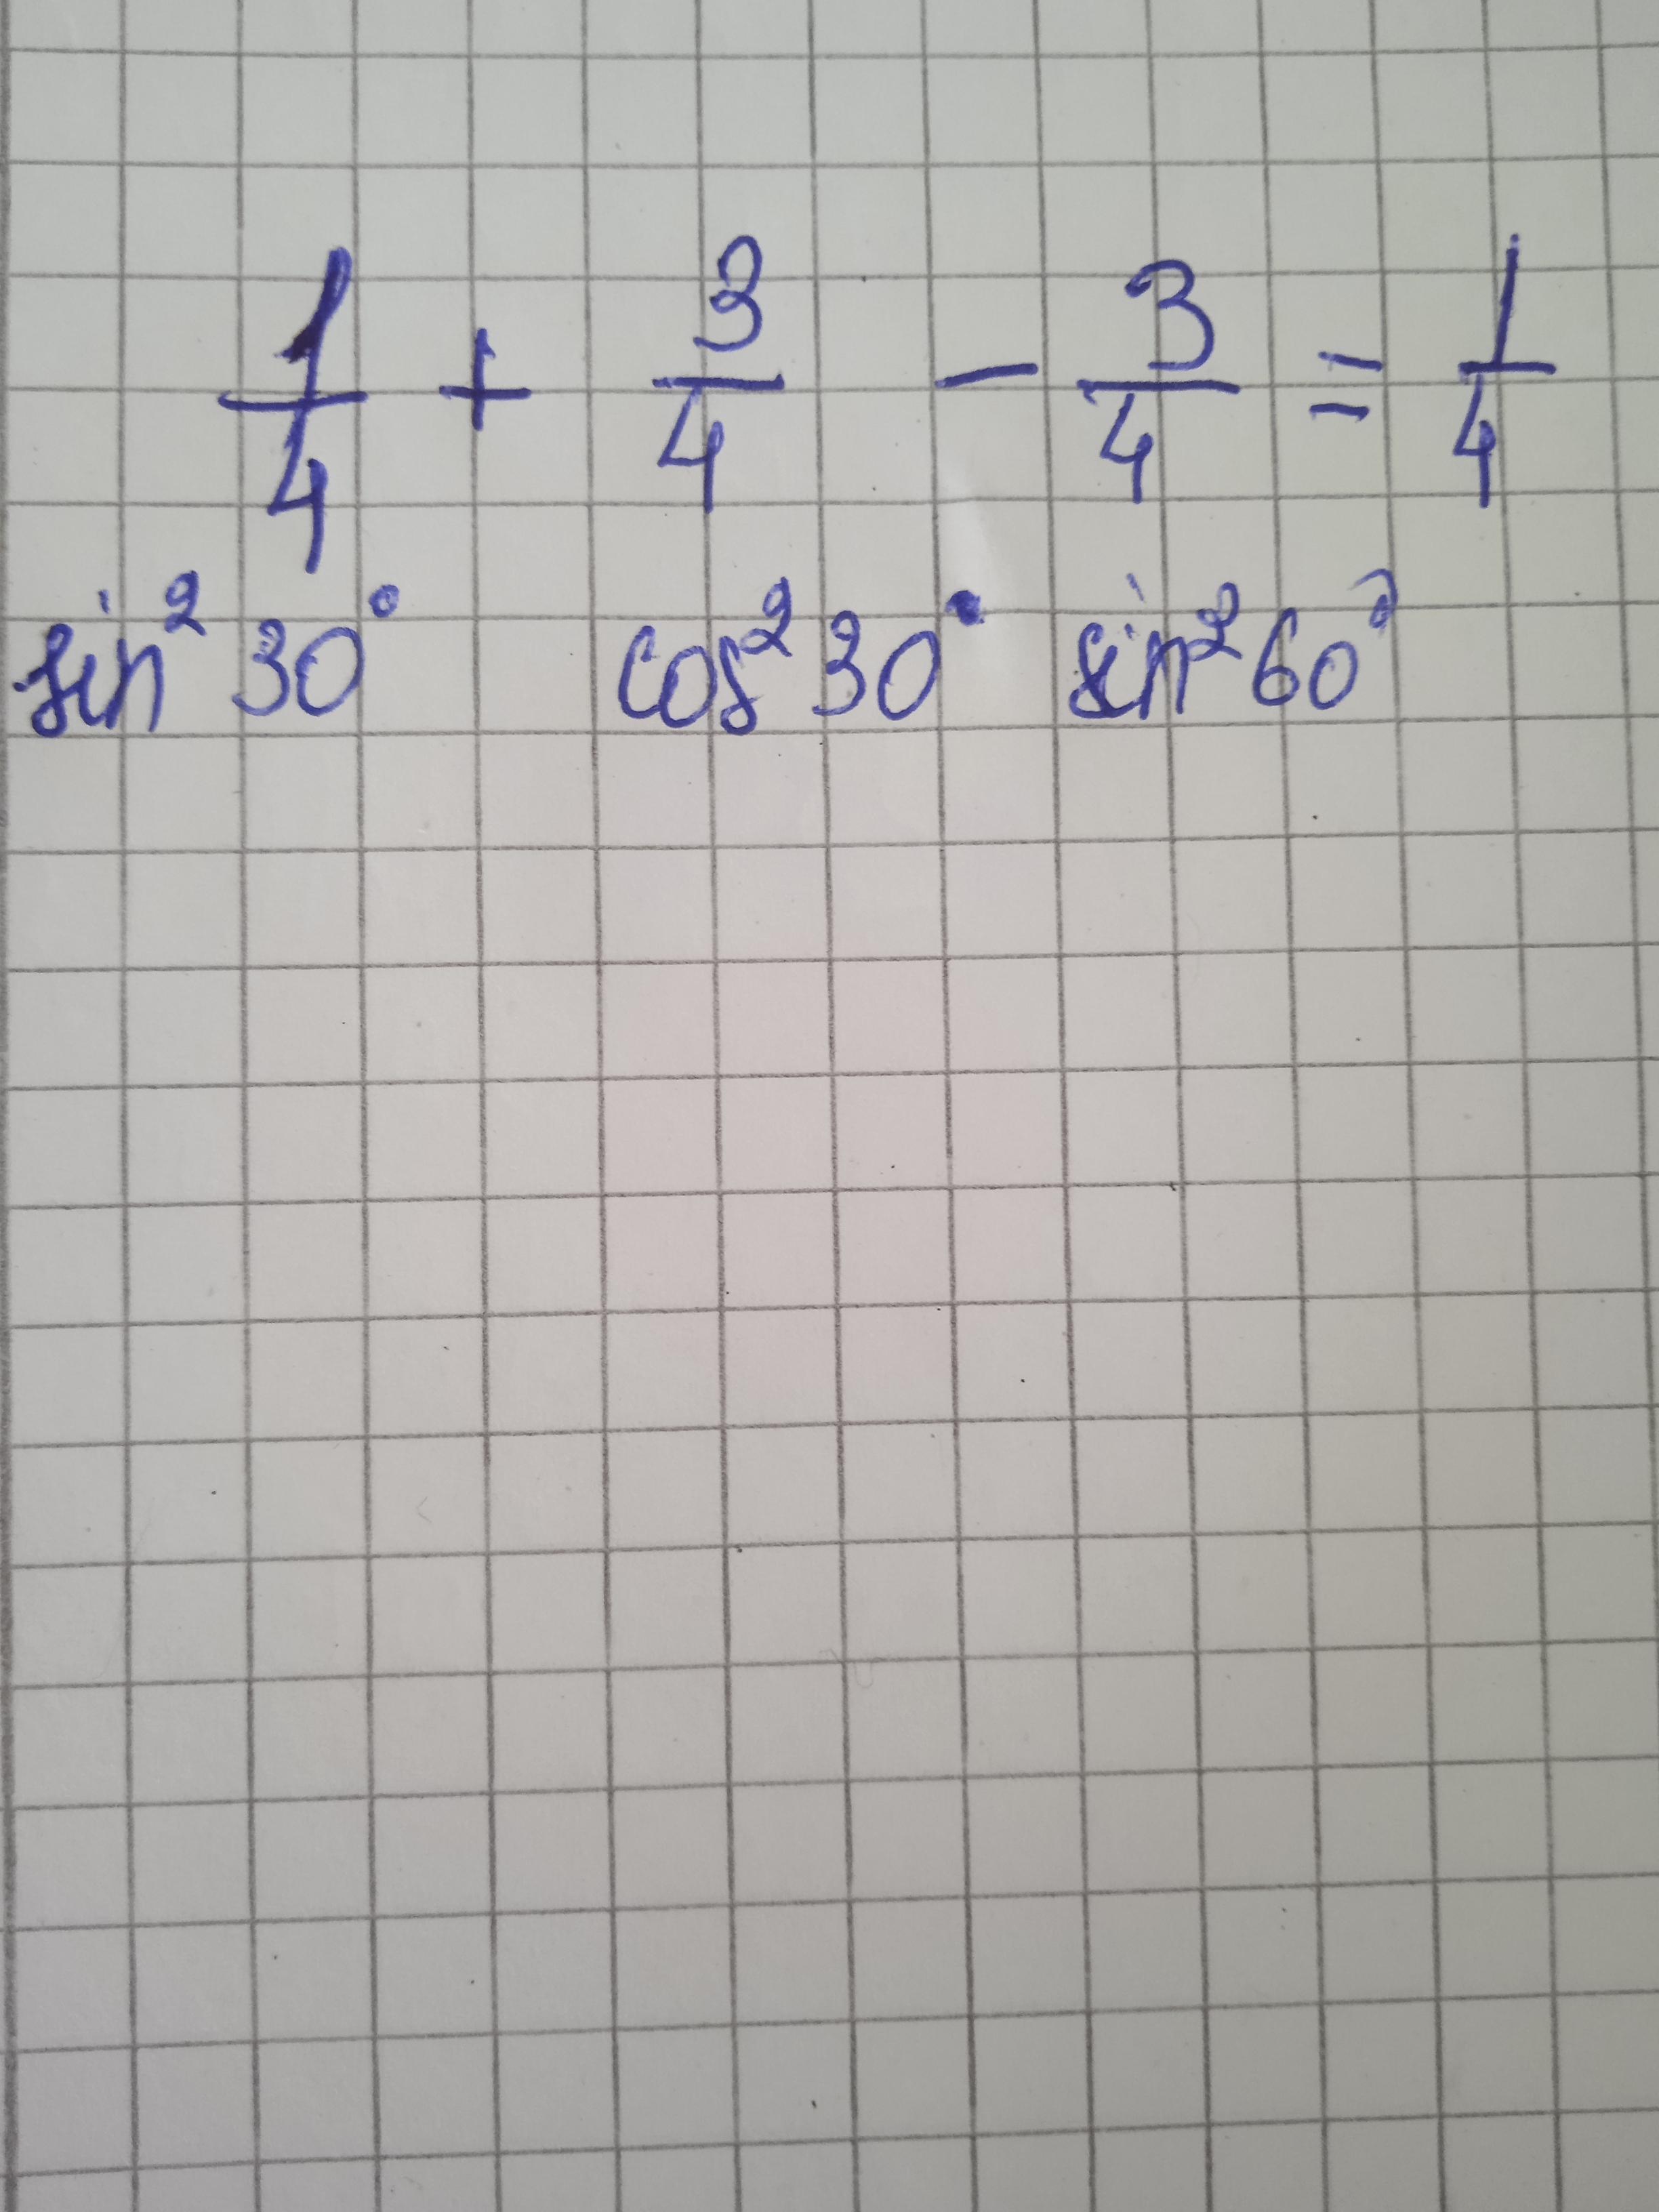 1/4 + 3/4 - 3/4 = 1/4
sin² 30° cos² 30° sin² 60°